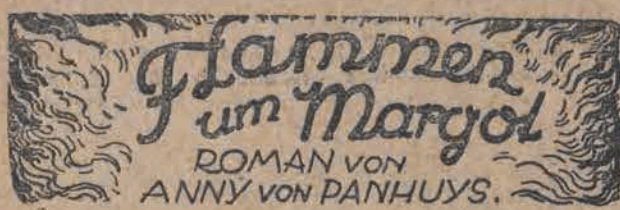 Flammen
um Margot
ROMAN VON
ANNY VON PANHUYS.